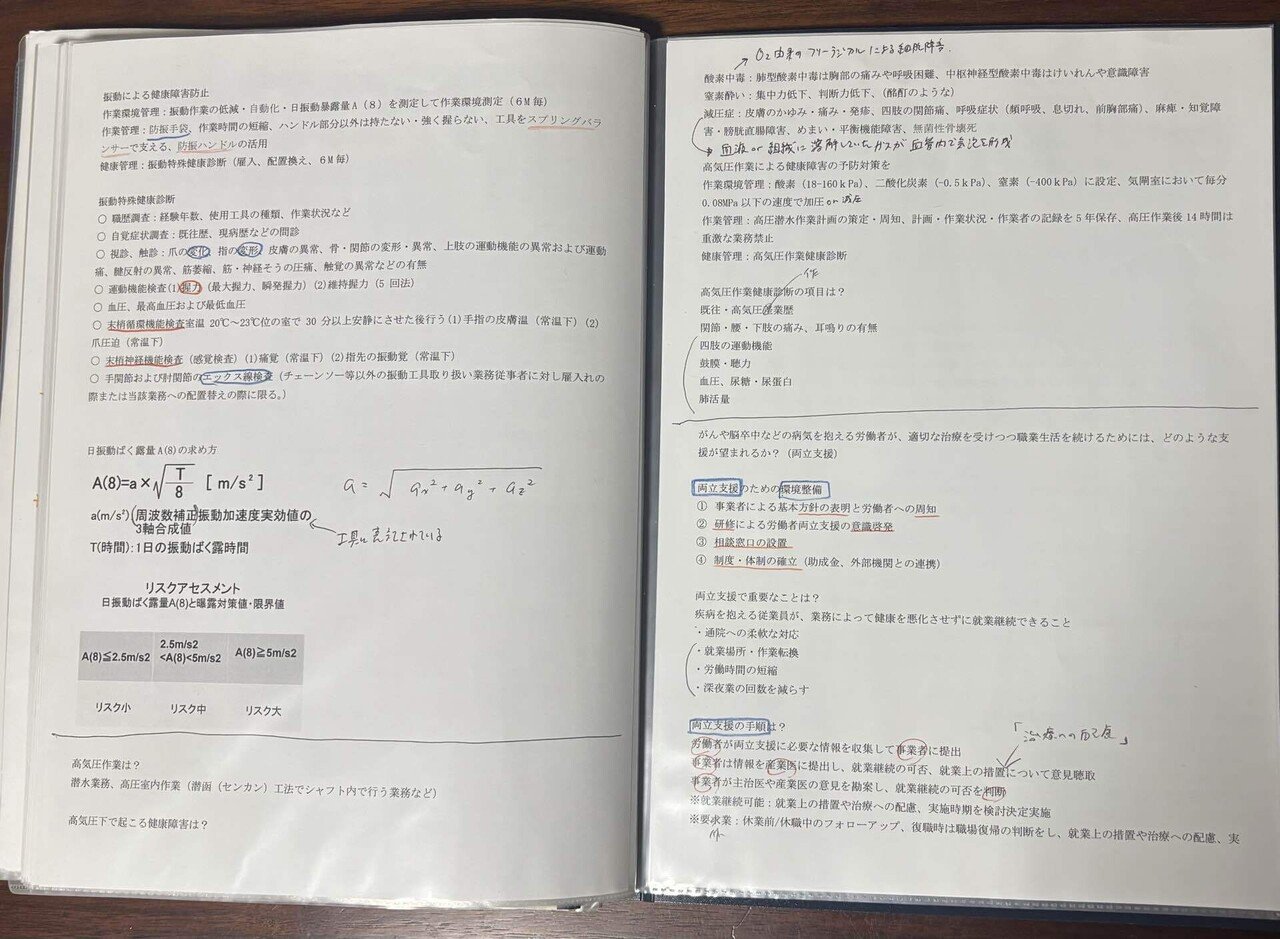 振動による健康障害防止
作業環境管理：振動作業の低減・自動化・日振動暴露量A（8）を測定して作業環境測定（6M毎）
作業管理：防振手袋、作業時間の短縮、ハンドル部分以外は持たない・強く握らない、工具をスプリングバラ
ンサーで支える、防振ハンドルの活用
健康管理：振動特殊健康診断（雇入、配置換え、6M毎）
振動特殊健康診断
○ 職歴調査：経験年数、使用工具の種類、作業状況など
○ 自覚症状調査：既往歴、現病歴などの問診
○ 視診、触診：爪の変化、指の変形、皮膚の異常、骨・関節の変形・異常、上肢の運動機能の異常および運動
痛、腱反射の異常、筋萎縮、筋・神経そうの圧痛、触覚の異常などの有無
○ 運動機能検査(1)握力（最大握力、瞬発握力）(2)維持握力（5 回法）
○ 血圧、最高血圧および最低血圧
○ 末梢循環機能検査室温 20℃～23℃位の室で 30 分以上安静にさせた後行う(1)手指の皮膚温（常温下）(2)
爪圧迫（常温下）
○ 末梢神経機能検査（感覚検査）(1)痛覚（常温下）(2)指先の振動覚（常温下）
○ 手関節および肘関節のエックス線検査（チェーンソー等以外の振動工具取り扱い業務従事者に対し雇入れの
際または当該業務への配置替えの際に限る。）
日振動ばく露量A(8)の求め方
A(8)=a×√T/8 [ m/s²]
a = √ax² + ay² + az²
a(m/s²)(周波数補正)振動加速度実効値の
3軸合成値
工具に表記されている
T(時間)：1日の振動ばく露時間
リスクアセスメント
日振動ばく露量A(8)と曝露対策値・限界値
A(8)≦2.5m/s2
2.5m/s2
<A(8)<5m/s2
A(8)≧5m/s2
リスク小 リスク中 リスク大
高気圧作業は？
潜水業務、高圧室内作業（潜函（センカン）工法でシャフト内で行う業務など）
高気圧下で起こる健康障害は？
O₂由来のフリーラジカルによる細胞障害.
酸素中毒：肺型酸素中毒は胸部の痛みや呼吸困難、中枢神経型酸素中毒はけいれんや意識障害
窒素酔い：集中力低下、判断力低下、（酩酊のような）
減圧症：皮膚のかゆみ・痛み・発疹、四肢の関節痛、呼吸症状（頻呼吸、息切れ、前胸部痛）、麻痺・知覚障
害・膀胱直腸障害、めまい・平衡機能障害、無菌性骨壊死
血液 or 組織に溶解していたガスが血管内で気泡を形成
高気圧作業による健康障害の予防対策を
作業環境管理：酸素（18-160ｋPa）、二酸化炭素（-0.5ｋPa）、窒素（-400ｋPa）に設定、気閘室において毎分
0.08MPa 以下の速度で加圧 or 減圧
作業管理：高圧潜水作業計画の策定・周知、計画・作業状況・作業者の記録を 5 年保存、高圧作業後 14 時間は
重激な業務禁止
健康管理：高気圧作業健康診断
高気圧作業健康診断の項目は？
作
既往・高気圧産業歴
関節・腰・下肢の痛み、耳鳴りの有無
四肢の運動機能
鼓膜・聴力
血圧、尿糖・尿蛋白
肺活量
がんや脳卒中などの病気を抱える労働者が、適切な治療を受けつつ職業生活を続けるためには、どのような支
援が望まれるか？（両立支援）
両立支援のための環境整備
① 事業者による基本方針の表明と労働者への周知
② 研修による労働者両立支援の意識啓発
③ 相談窓口の設置
④ 制度・体制の確立（助成金、外部機関との連携）
両立支援で重要なことは？
疾病を抱える従業員が、業務によって健康を悪化させずに就業継続できること
・通院への柔軟な対応
・就業場所・作業転換
・労働時間の短縮
・深夜業の回数を減らす
両立支援の手順は？
「治療への配慮」
労働者が両立支援に必要な情報を収集して事業者に提出
事業者は情報を産業医に提出し、就業継続の可否、就業上の措置について意見聴取
事業者が主治医や産業医の意見を勘案し、就業継続の可否を判断
※就業継続可能：就業上の措置や治療への配慮、実施時期を検討決定実施
※要求業：休業前/休職中のフォローアップ、復職時は職場復帰の判断をし、就業上の措置や治療への配慮、実
休